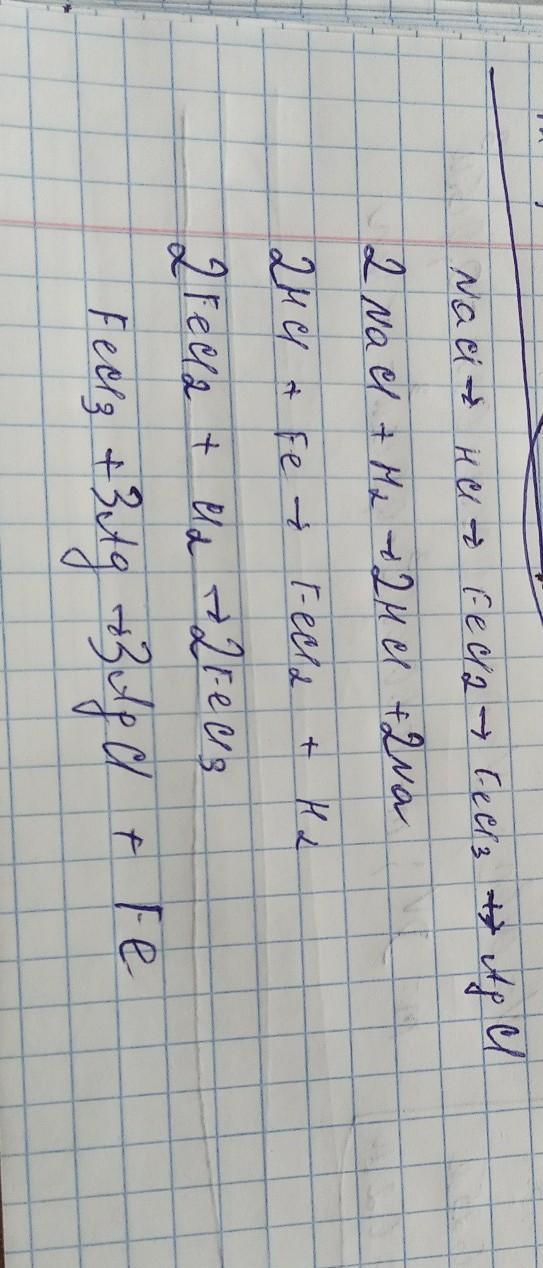 NaCl → HCl → FeCl2 → FeCl3 → AgCl
2 NaCl + H2 → 2HCl + 2Na
2HCl + Fe → FeCl2 + H2
2FeCl2 + Cl2 → 2FeCl3
FeCl3 + 3Ag → 3AgCl + Fe